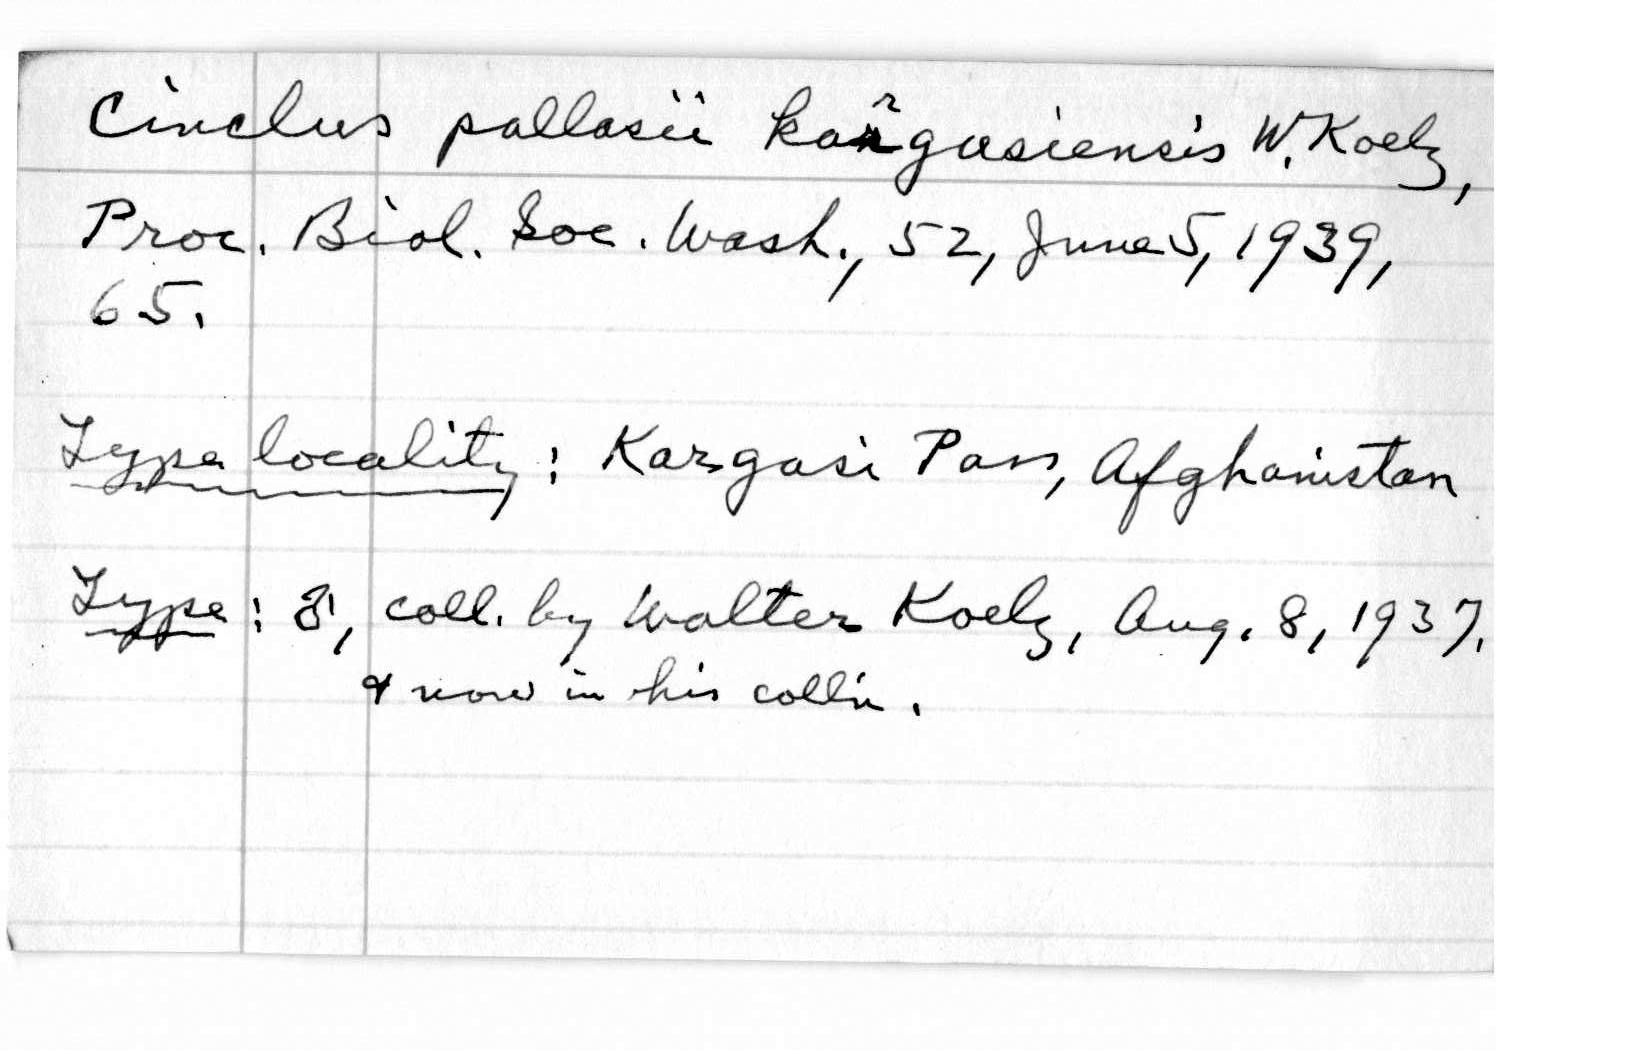 Cinclus pallasii kargasiensis W. Koelz,
Proc. Biol. Soc. Wash., 52, June 5, 1939,
65.
Type locality: Kargasi Pass, Afghanistan
Type: ♂, coll. by Walter Koelz, Aug. 8, 1937,
& now in his coll'n.